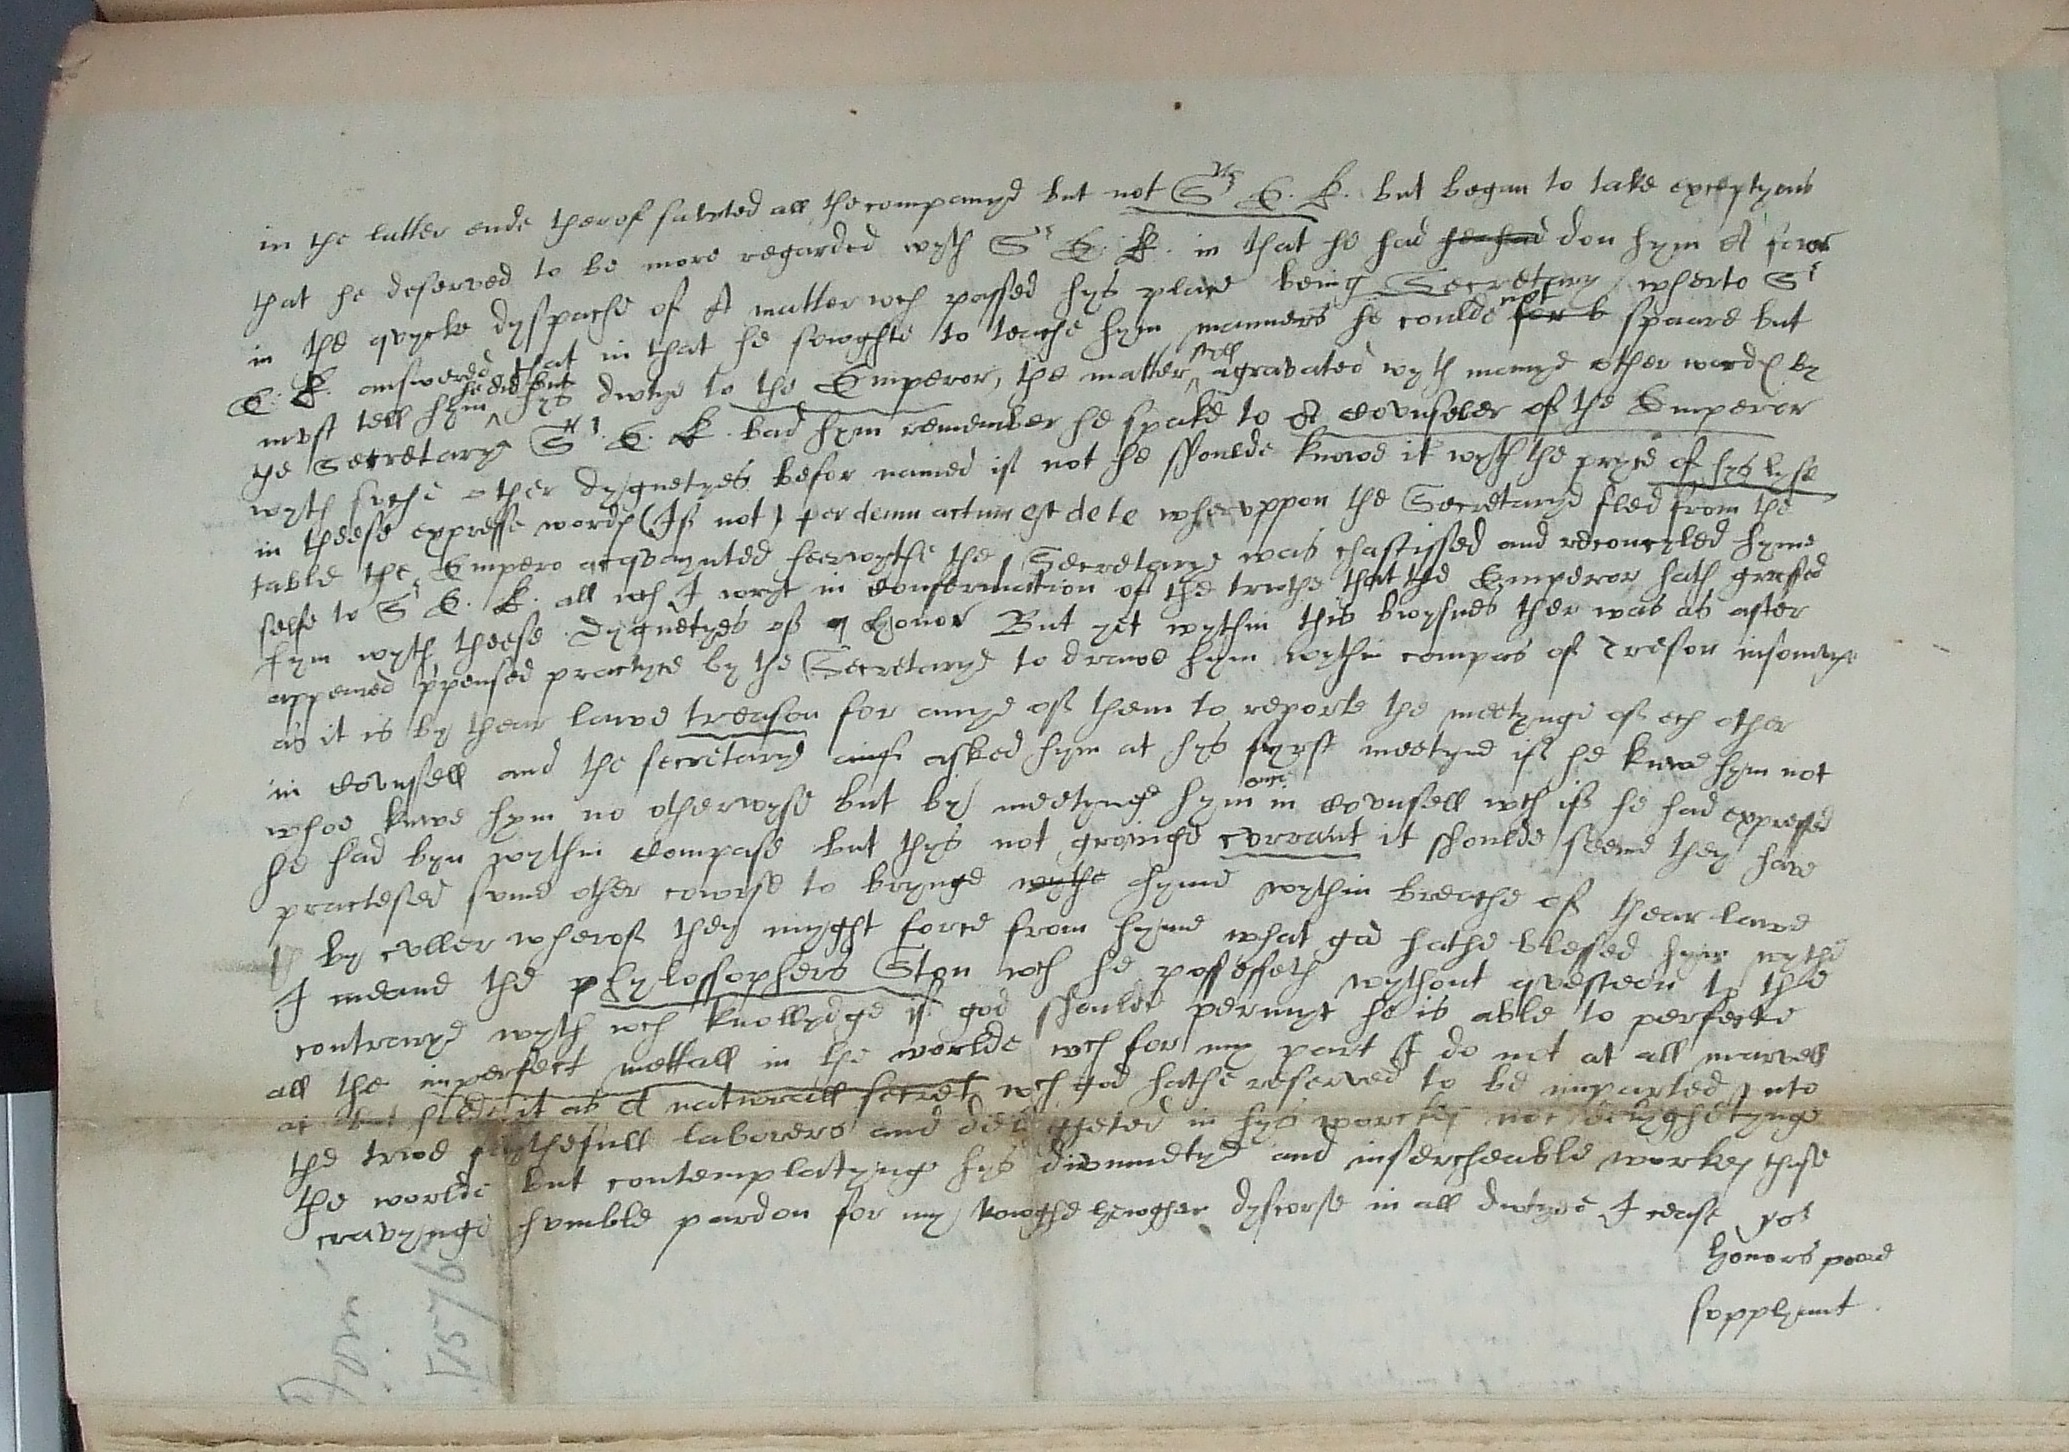 in the latter ende therof saluted all the companye but not Sr E. K. but began to take exceptyons
that he deserved to be more regarded wyth Sr E. K. in that he had he had don hym A favor
in the quycke dyspache of A matter wch passed hys place being Secretary, wherto Sr
E. K. answered that in that he sowghte to teache hym manners he coulde not for b spaare but
must tell hym he did but hys dwtye to the Emperor, the matter still agravated wyth manye other words by
the Secretarye Sr E. K. bad hym remember he spake to A counseler of the Emperor
wyth suche other dygnetyes befor named if not he shoulde knowe it wyth the pryce of hys lyfe
in theese expresse words (If not) per deum actum est de te wheruppon the Secretarye fled from the
table the Empero acquaynted heerwythe the Secretarye was chastissed and reconcyled hyme
selfe to Sr E. K. all wch I wryt in confermation of the truthe that the Emperor hath graced
hym wyth theese dygnetyes of Honor But yet wythin this bwysnes ther was as after
appeared ppensed practyce by the Secretarye to drawe hym wythin compas of Treson insomuche
as it is by thear lawe treason for anye of them to reporte the meetynge of ech other
in counsell and the secretarye asked hym at hys fyrst meetyng if he knewe hym not
whoe knewe hym no otherwyse but by meetynge hym once in counsell wch if he had expressed
he had byn wythin compase but thys not groinge currant it shoulde seeme they have
practesed sume other cowrse to brynge wythe hyme wythin breache of thear lawe
by culler wherof they myght force from hyme what god hathe blessed hym wythe
I meane the phylossophers Ston wch he possesseth wythout questeon to the
contrarye wyth wch knollydge if god shoulde permyt he is able to perfecte
all the imperfect mettall in the worlde wch for my part I do not at all marvell
at but holde it as A naturall secret wch god hathe reserved to be imparted unto
the trwe faythefull laborers and delygheted in hys workes not delyghetynge
the worlde but contemplatynge hys divinnetye and insercheable workes thuse
cravynge humble pardon for my rowghe hewghen dyscorse in all dwtyee I cease yor
Honors poore
supplyant.
1576